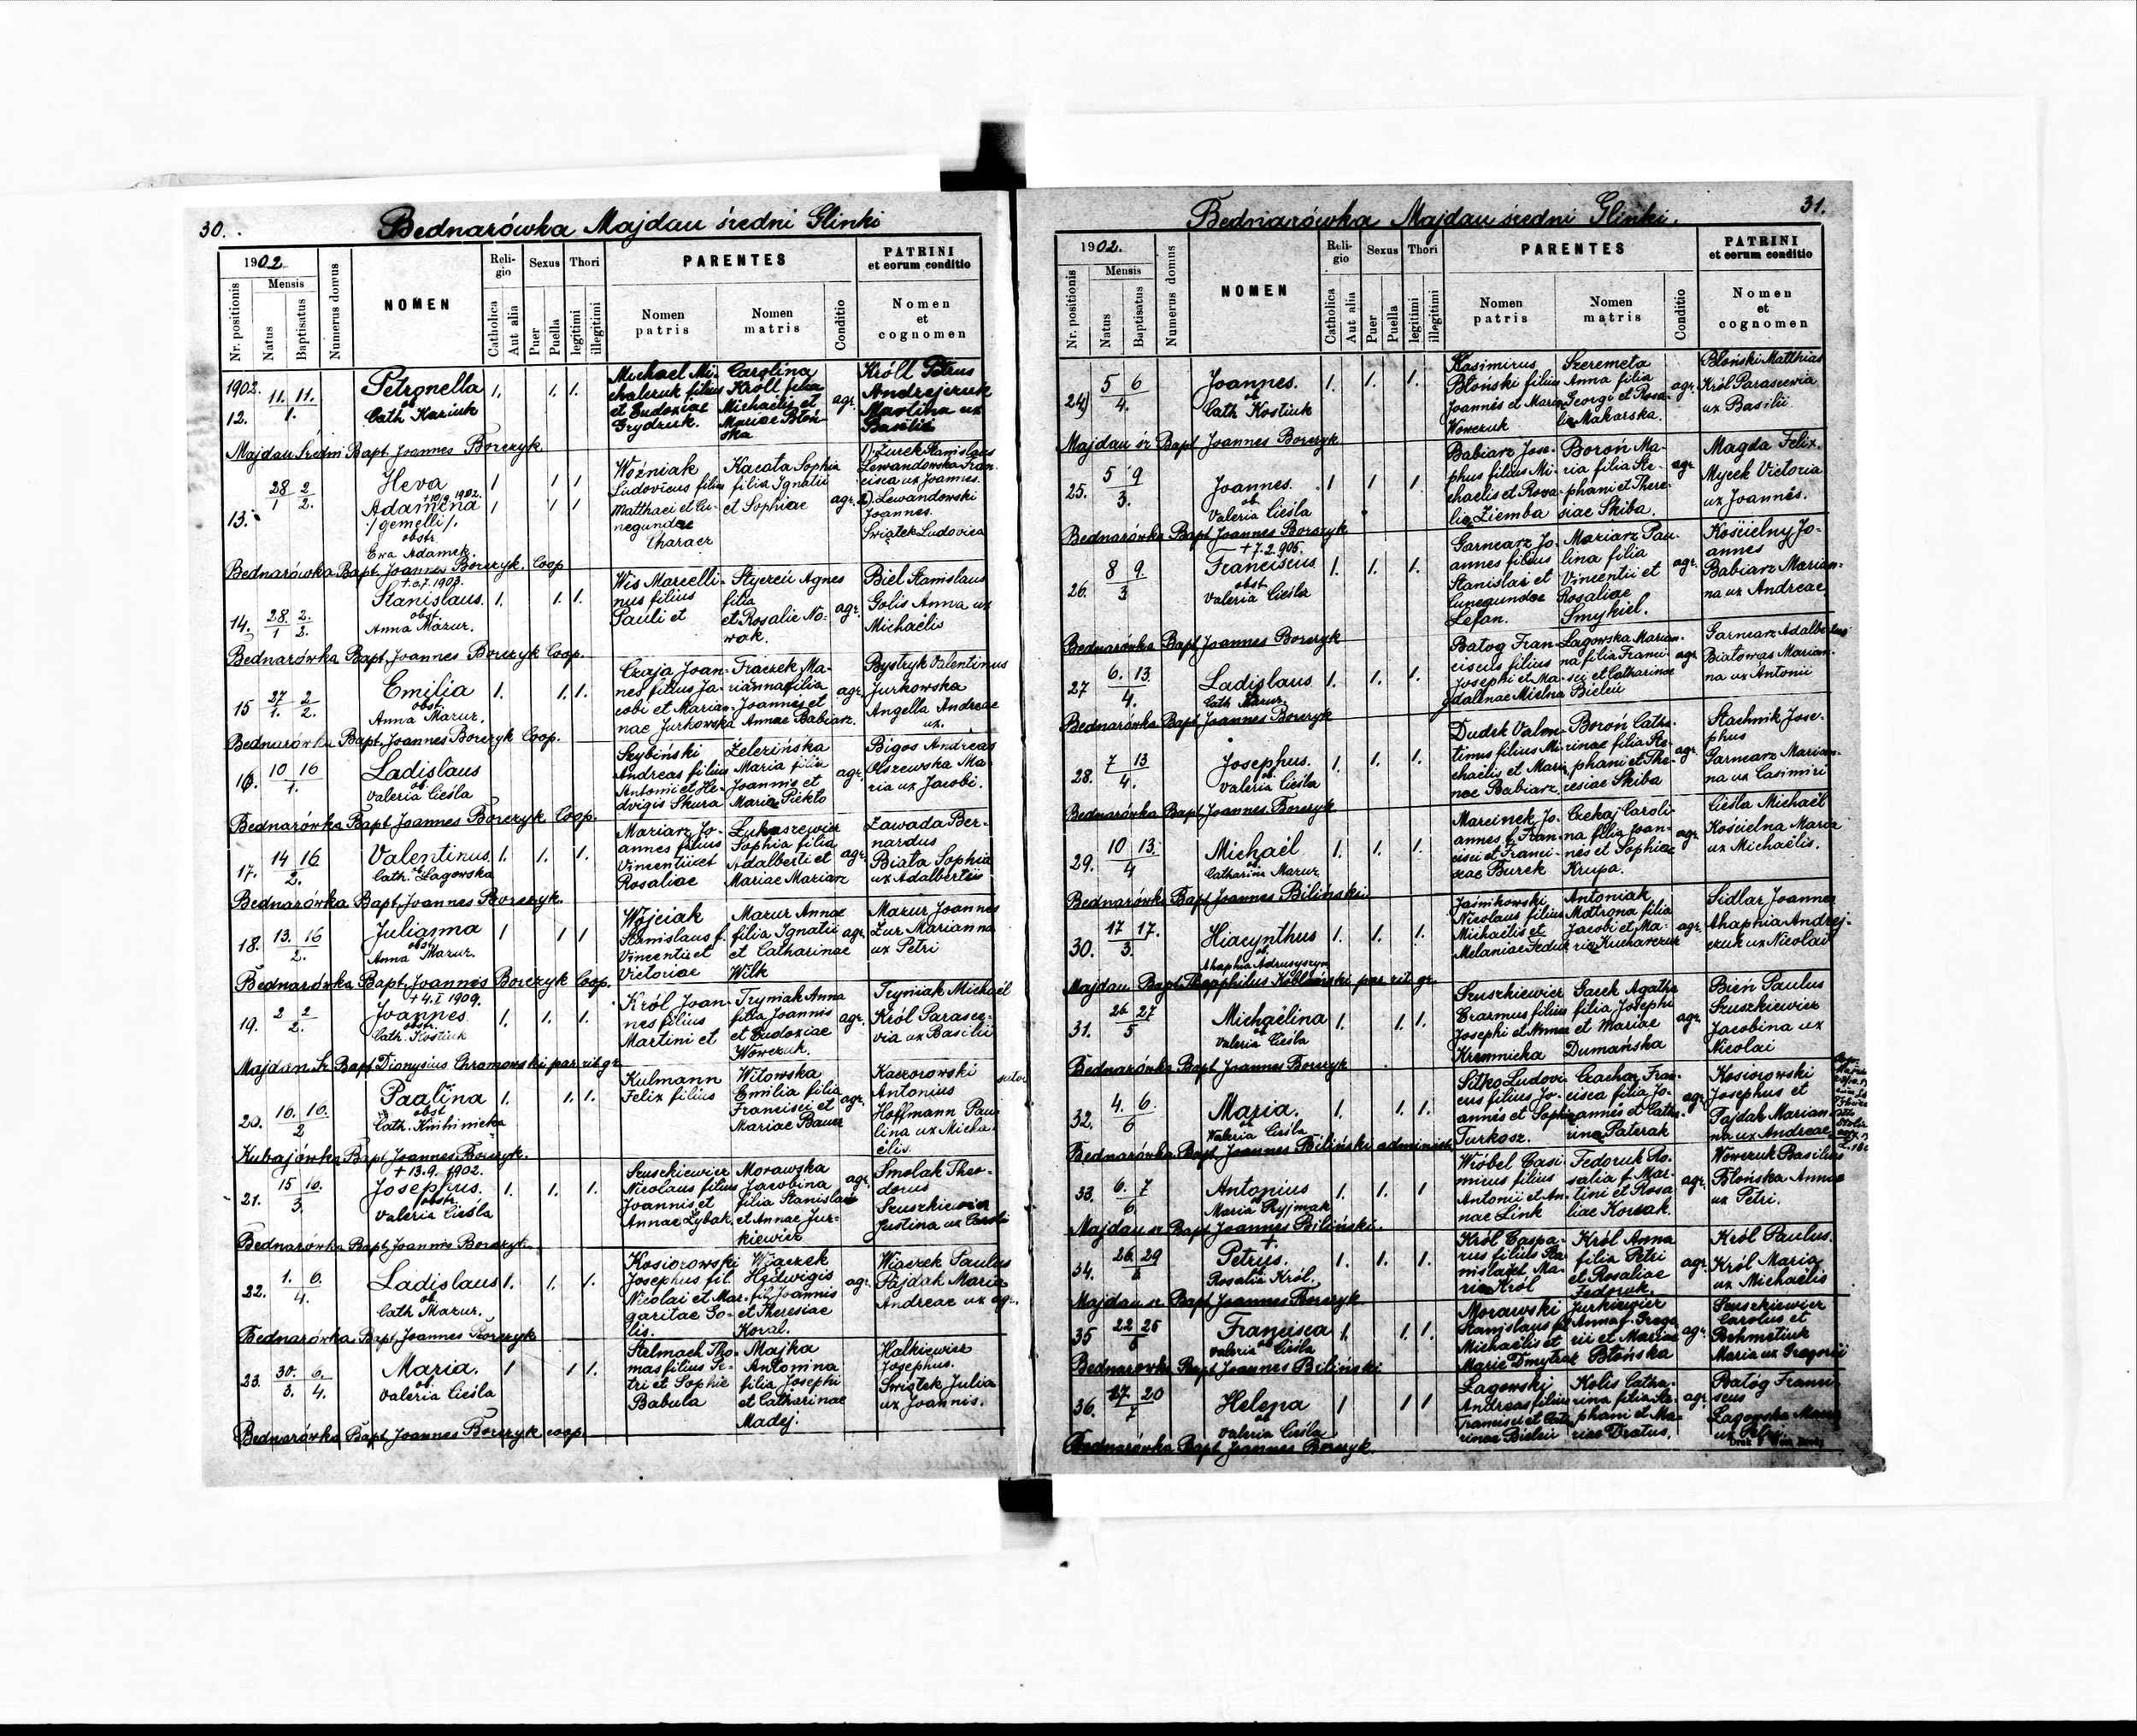 30.
Bednarówka Majdan średni Glinki
1902
Mensis
Nr. positionis
Natus
Baptisatus
Numerus domus
NOMEN
Religio
Catholica
Aut alia
Sexus
Puer
Puella
Thori
legitimi
illegitimi
PARENTES
Nomen patris
Nomen matris
Conditio
PATRINI
et eorum conditio
Nomen
et
cognomen
1902.
12.
11. 11.
1.
Petronella
ob
Cath Kaziuk
1. 1. 1.
Michael Mi-
chalczuk filius
et Eudoxiae
Grydzuk.
Carolina
Król filia
Michaelis et
Mariae Błoń-
ska
agr.
Król Petrus
Andrejczuk
Martina ux
Basilii
Majdan średni Bapt. Joannes Borczyk.
13.
28 2
1 2.
Heva
+10/9 1902.
Adamina
/gemelli/.
obstr.
Eva Adamek.
1 1 1
1 1 1
Woźniak
Ludovicus filius
Matthaei et Cu-
negundae
Characz
Kacata Sophia
filia Ignatii
et Sophiae
agr.
1). Żurek Stanislaus
Lewandowska Fran-
cisca ux Joannes.
2). Lewandowski
Joannes.
Świątek Ludovica
Bednarówka Bapt. Joannes Borczyk. Coop
14.
28. 2.
1 2.
Stanislaus.
obst.
Anna Mazur.
1. 1. 1.
Wis Marcelli-
nus filius
Pauli et
Agnes
filia
et Rosalie No-
wak.
agr.
Biel Stanislaus
Golis Anna ux
Michaelis
Bednarówka Bapt. Joannes Borczyk Coop.
15
27 2
1. 2.
Emilia
obst.
Anna Mazur.
1. 1. 1.
Czaja Joan-
nes filius Ja-
cobi et Marian-
nae Jurkowska
Fraczek Ma-
rianna filia
Joannes et
Annae Babiarz.
agr.
Bystryk Valentinus
Jurkowska
Angella Andreae
ux.
Bednarówka Bapt. Joannes Borczyk Coop.
16.
10 16
1.
Ladislaus
ob.
Valeria Cieśla
Szybiński
Andreas filius
Antonii et He-
dvigis Skura
Żelezińska
Maria filia
Joannis et
Maria Piekło
agr.
Bigos Andreas
Olszewska Ma-
ria ux Jacobi.
Bednarówka Bapt Joannes Borczyk. Coop.
17.
14 16
2.
Valentinus
ob
Cath. Łagowska
1. 1. 1.
Mariarz Jo-
annes filius
Vincentii et
Rosaliae
Łukaszewicz
Sophia filia
Adalberti et
Mariae Mariarz
agr.
Zawada Ber-
nardus
Biata Sophia
ux Adalbertii
Bednarówka Bapt. Joannes Borczyk.
18.
13. 16
2.
Julianna
obst.
Anna Mazur.
1 1 1
Wojciak
Stanislaus f.
Vincentii et
Victoriae
Mazur Annae
filia Ignatii
et Catharinae
Wilk
agr.
Mazur Joannes
Żur Marianna
ux Petri
Bednarówka Bapt. Joannes Borczyk Coop.
19.
2 2
2.
+4.I 1909.
Joannes.
obstr.
Cath. Kostiuk
1. 1. 1.
Król Joan-
nes filius
Martini et
Tryniak Anna
filia Joannis
et Eudoxiae
Wowczuk.
agr.
Tryniak Michaël
Król Parasce-
via ux Basilii
Majdan śr. Bapt Dionysius Chramowski par. rit. gr.
20.
16. 16.
2
Paulina
obst
Cath.
1. 1. 1.
Kulmann
Felix filius
Witowska
Emilia filia
Francisci et
Mariae Bauer
agr.
Kaczorowski
Antonius
Hoffmann Pau-
lina ux Micha-
elis.
sutor
Kubajówka Bapt Joannes Borczyk.
21.
15 16.
3.
+ 13.9. 1902.
Josephus.
obstr.
Valeria Cieśla
1. 1. 1.
Szuszkiewicz
Nicolaus filius
Joannis et
Annae Łybak.
Morawska
Jacobina
filia Stanislai
et Annae Jur-
kiewicz
agr.
Smolak Theo-
dorus
Szuszkiewicz
Justina ux Caroli
Bednarówka Bapt. Joannes Borczyk.
22.
1. 6.
4.
Ladislaus
ob.
Cath Mazur.
1. 1. 1.
Kosiorowski
Josephus fil.
Nicolai et Mar-
garitae Go-
lis.
Wiaczek
Hedwigis
fil. Joannis
et Theresiae
Koral.
agr.
Wiaczek Paulus
Pajdak Maria
Andreae ux agr.
Bednarówka Bapt. Joannes Borczyk
23.
30. 6.
3. 4.
Maria.
ob.
Valeria Cieśla
1 1 1.
Stelmach Tho-
mas filius Pe-
tri et Sophie
Babula
Majka
Antonina
filia Josephi
et Catharinae
Madej.
Halkiewicz
Josephus.
Świątek Julia
ux Joannis.
Bednarówka Bapt. Joannes Borczyk coop.
31.
Bednarówka Majdan średni Glinki.
1902.
Mensis
Nr. positionis
Natus
Baptisatus
Numerus domus
NOMEN
Religio
Catholica
Aut alia
Sexus
Puer
Puella
Thori
legitimi
illegitimi
PARENTES
Nomen patris
Nomen matris
Conditio
PATRINI
et eorum conditio
Nomen
et
cognomen
24)
5 6
4.
Joannes.
ob
Cath Kostiuk
1. 1. 1.
Kasimirus
Błoński filius
Joannes et Maria
Wowczuk
Szeremeta
Anna filia
Georgi et Rosa-
lia Makarska.
agr.
Błoński Matthias
Król Parascewia
ux Basilii
Majdan śr Bapt Joannes Borczyk
25.
5 9
3.
Joannes.
ob
Valeria Cieśla
1 1 1
Babiarz Jose-
phus filius Mi-
chaelis et Rosa-
lia Ziemba
Boroń Ma-
ria filia Ste-
phani et There-
siae Skiba.
agr.
Magda Felix.
Mycek Victoria
ux Joannes.
Bednarówka Bapt Joannes Borczyk
26.
8 9.
3
+7.2.905.
Franciscus
obst
Valeria Cieśla
1. 1. 1.
Garncarz Jo-
annes filius
Stanislai et
Cunegundae
Lefan.
Mariarz Pau-
lina filia
Vincentii et
Rosaliae
Smykiel.
agr.
Kościelny Jo-
annes
Babiarz Marian-
na ux Andreae
Bednarówka Bapt Joannes Borczyk
27
6. 13
4.
Ladislaus
ob
Cath Mazur
1. 1. 1.
Batog Fran-
ciscus filius
Josephi et Ma-
gdalenae Mielna
Łagowska Marian-
na filia Franci-
sci et Catharinae
Bieleń
agr.
Garncarz Adalbertus
Białowąs Marian-
na ux Antonii
Bednarówka Bapt Joannes Borczyk
28.
7 13
4.
Josephus.
ob.
Valeria Cieśla
1. 1. 1.
Dudek Valen-
tinus filius Mi-
chaelis et Marian-
nae Babiarz.
Boroń Catha-
rinae filia Ste-
phani et The-
resiae Skiba
agr.
Stachnik Jose-
phus
Garncarz Marian-
na ux Casimiri
Bednarówka Bapt Joannes Borczyk
29.
10 13.
4
Michaël
ob
Catharina Mazur
1. 1. 1.
Marcinek Jo-
annes f. Fran-
cisci et Franci-
scae Burek
Czekaj Caroli-
na filia Joan-
nes et Sophiae
Krupa.
agr.
Cieśla Michaël
Kościelna Maria
ux Michaelis.
Bednarówka Bapt Joannes Biliński
30.
17 17.
3.
Hiacynthus
ob.
1. 1. 1.
Jaśnikowski
Nicolaus filius
Michaelis et
Melaniae
Antoniak
Matrona filia
Jacobi et Ma-
ria Kucharczuk
agr.
Sidlar Joannes
Ahaphia Andrej-
czuk ux Nicolai
Majdan Bapt Theophilus par. rit. gr.
31.
26 27
5
Michaëlina
ob
Valeria Cieśla
1. 1 1.
Szuszkiewicz
Erasmus filius
Josephi et Annae
Kremnicka
Gacek Agatha
filia Josephi
et Mariae
Dumańska
agr.
Bień Paulus
Szuszkiewicz
Jacobina ux
Nicolai
Bednarówka Bapt Joannes Borczyk
32.
4. 6.
6
Maria.
ob
Valeria Cieśla
1. 1 1.
Sitko Ludovi-
cus filius Jo-
annes et Sophia
Turkosz.
Czachor Fran-
cisca filia Jo-
annes et Catha-
rina Paterak
agr.
Kosiorowski
Josephus et
Pajdak Marian-
na ux Andreae
Bednarówka Bapt Joannes Biliński administr.
33.
6. 7
6.
Antonius
ob
Maria Ryjmak
1. 1. 1
Wróbel Casi-
mirus filius
Antonii et An-
nae Link
Fedoruk Ro-
salia f. Mar-
tini et Rosa-
liae Korsak.
agr.
Wowczuk Basilius
Błońska Annae
ux Petri.
Majdan śr Bapt Joannes Biliński.
34.
26. 29
+
Petrus.
ob
Rosalia Król.
1. 1. 1.
Król Caspa-
rus filius Sta-
nislai et Ma-
ria Król
Król Anna
filia Petri
et Rosaliae
Fedoruk.
agr.
Król Paulus.
Król Maria
ux Michaelis
Majdan śr. Bapt Joannes Borczyk
35
22 25
Francisca
ob
Valeria Cieśla
1. 1 1.
Morawski
Stanislaus f.
Michaelis et
Marie Dmytrak
Jurkiewicz
Anna f. Grego-
rii et Mariae
Błońska
agr.
Szuszkiewicz
Carolus et
Maria ux Gregorii
Bednarówka Bapt Joannes Biliński
36.
17 20
7
Helena
ob
Valeria Cieśla
1 1 1
Łagowski
Andreas filius
Francisci et Catha-
rinae Bieleń
Kolis Catha-
rina filia Ste-
phani et Ma-
riae Dratus.
agr.
Batóg Franci-
scus
Łagowska Maria
Bednarówka Bapt Joannes Borczyk.